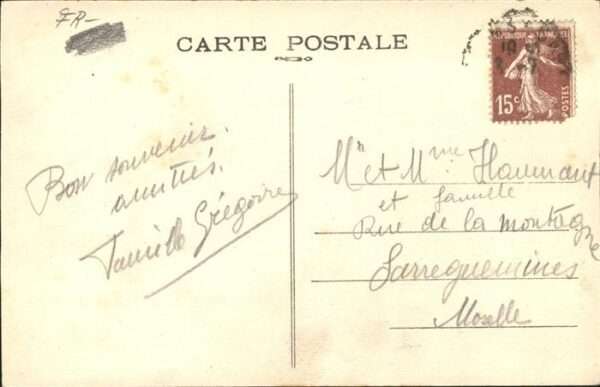 FR-
CARTE POSTALE
REPUBLIQUE FRANÇAISE
15c
POSTES
Bon souvenir.
amitiés.
Famille Grégoire
Mr et Mme Haumant
et famille
Rue de la montagne
Sarreguemines
Moselle